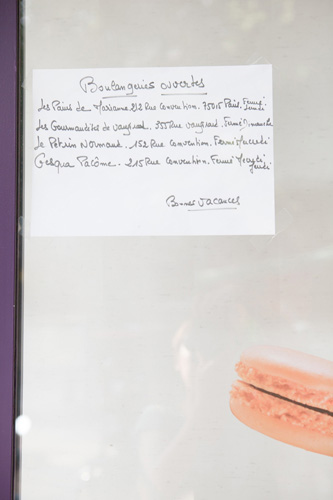 Boulangeries ouvertes
Les Pains de Marianne 212 Rue Convention. 75015 Paris. Fermé Jeudi
Les Gourmandises de Vaugirard. 355 Rue Vaugirard. Fermé Dimanche
Le Pétrin Normand. 152 Rue Convention. Fermé Mercredi
Pacôme. 215 Rue Convention. Fermé Mercredi Jeudi
Bonnes vacances